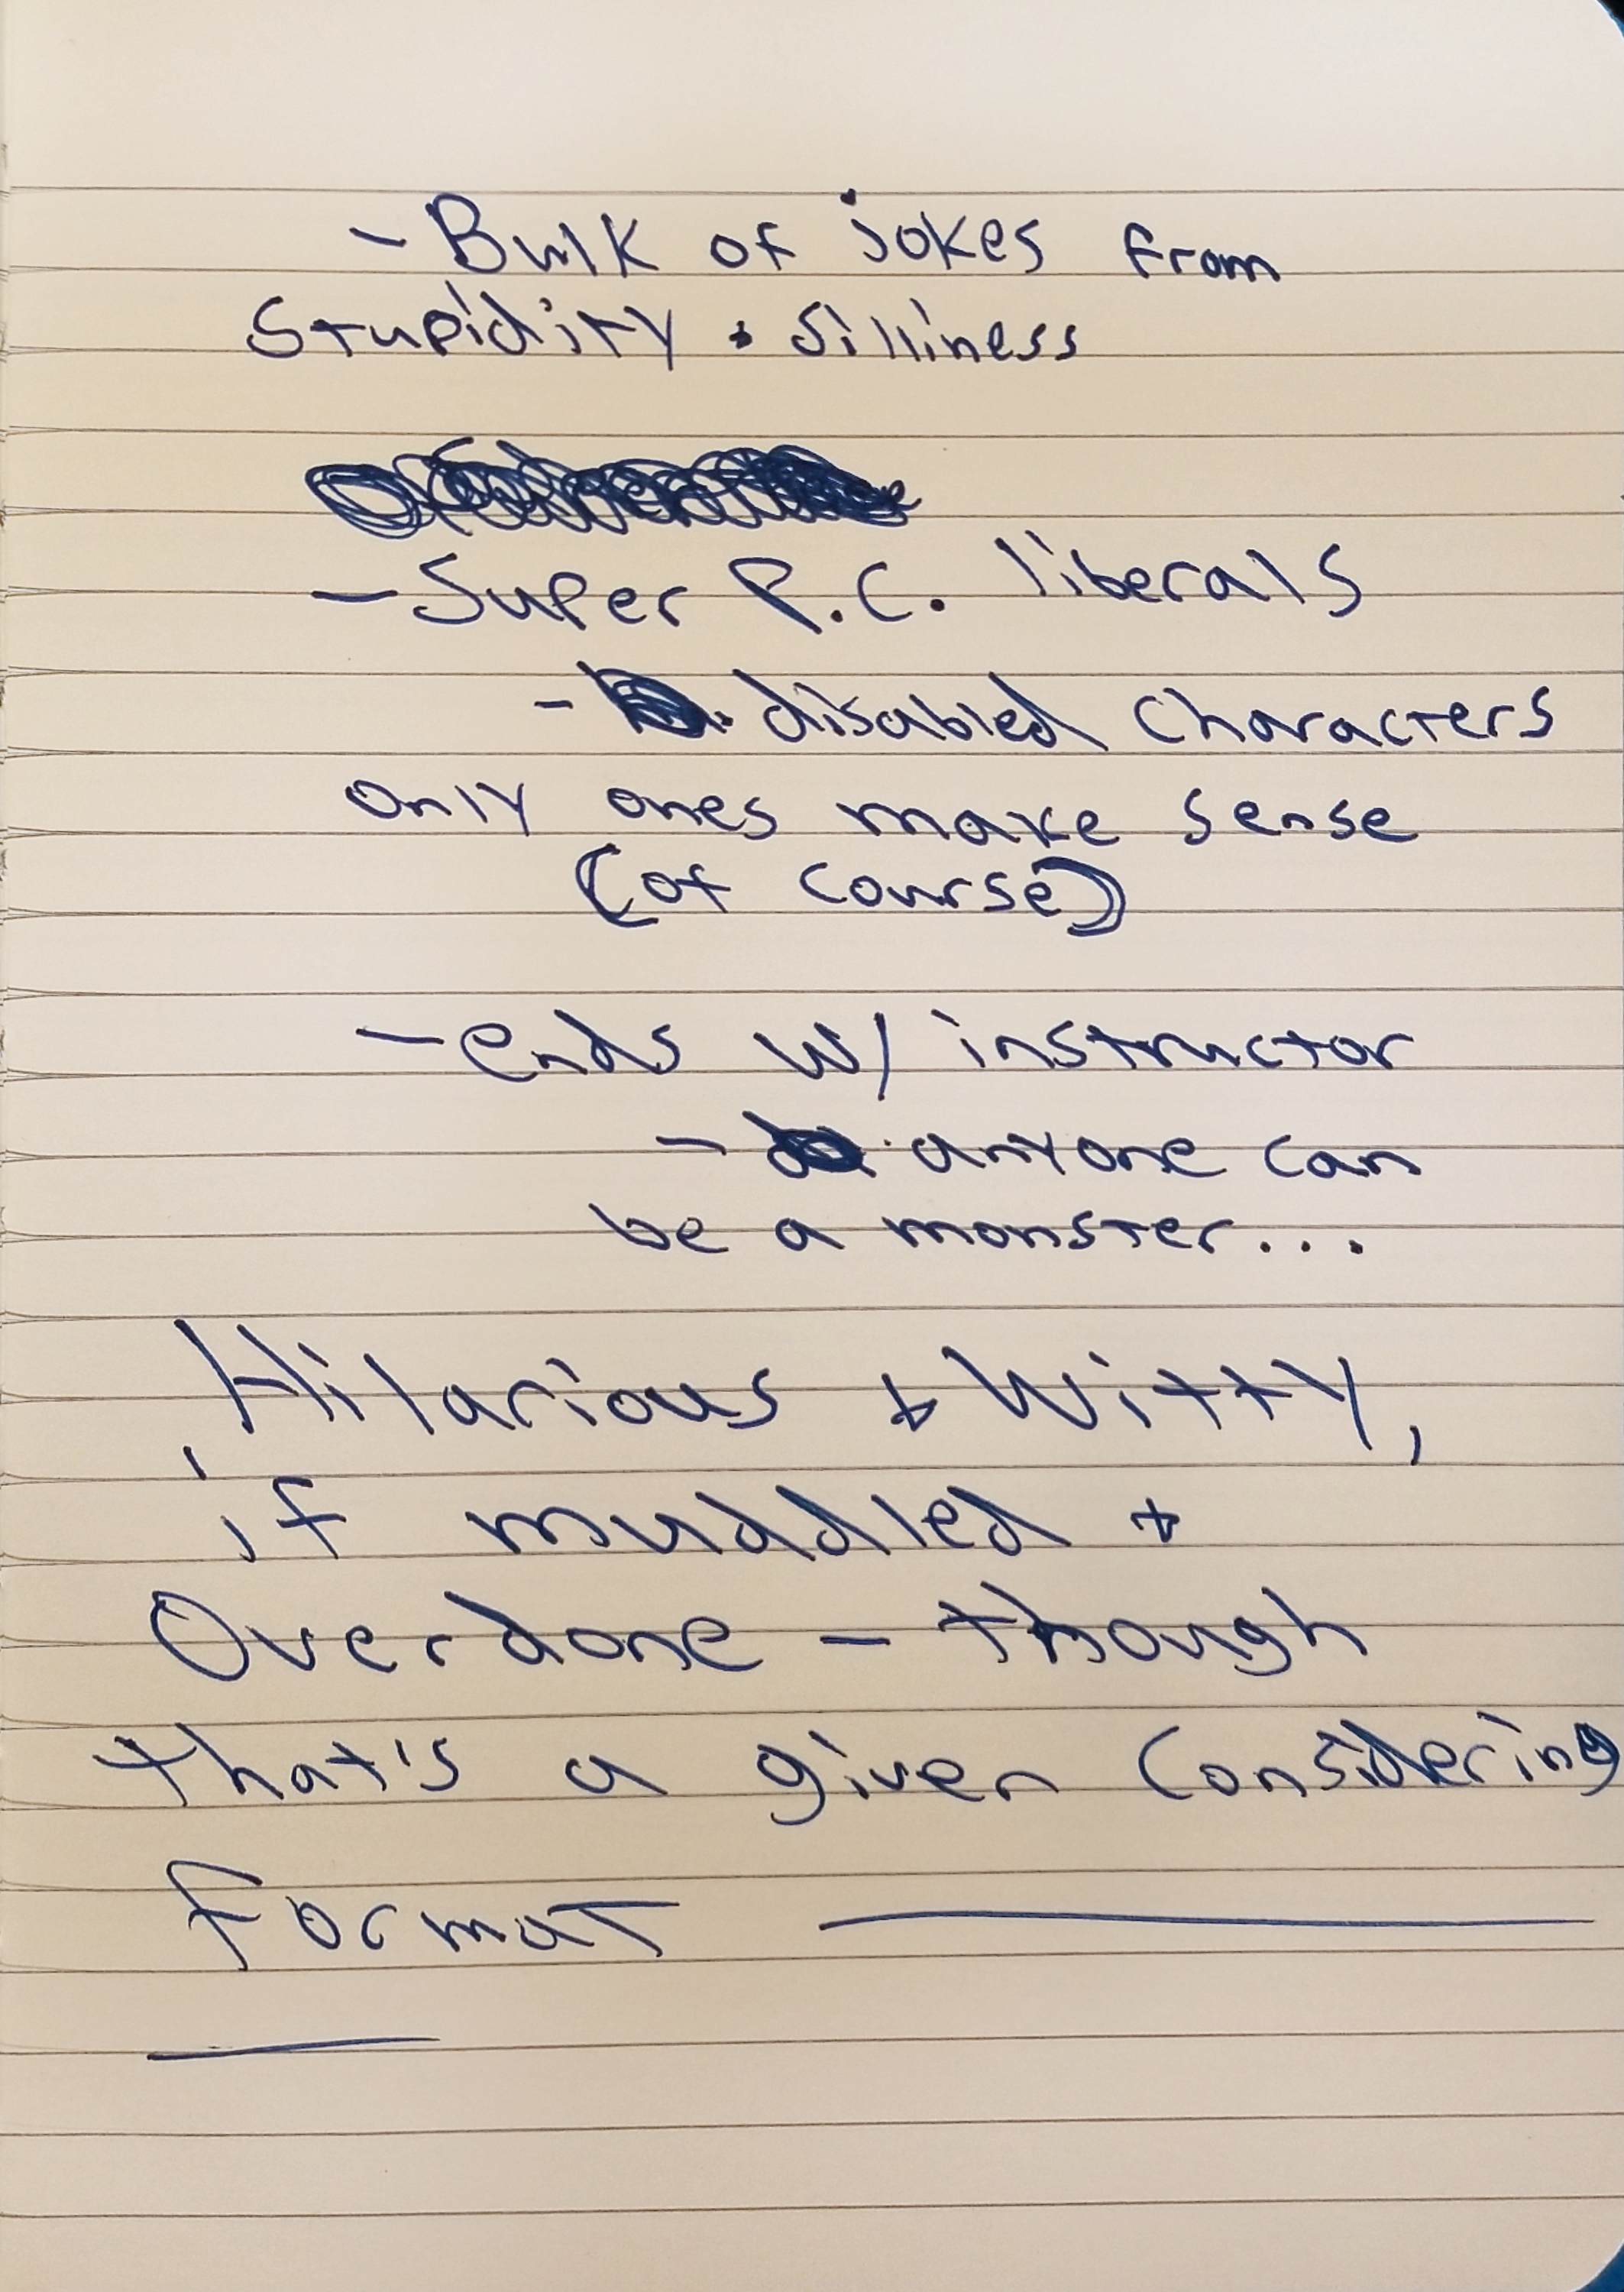 - Bulk of jokes from
Stupidity + Silliness
- Super P.C. liberals
- disabled characters
only ones make sense
(of course)
- ends w/ instructor
- anyone can
be a monster...
Hilarious + Witty,
if muddled +
Overdone - though
that's a given considering
Format